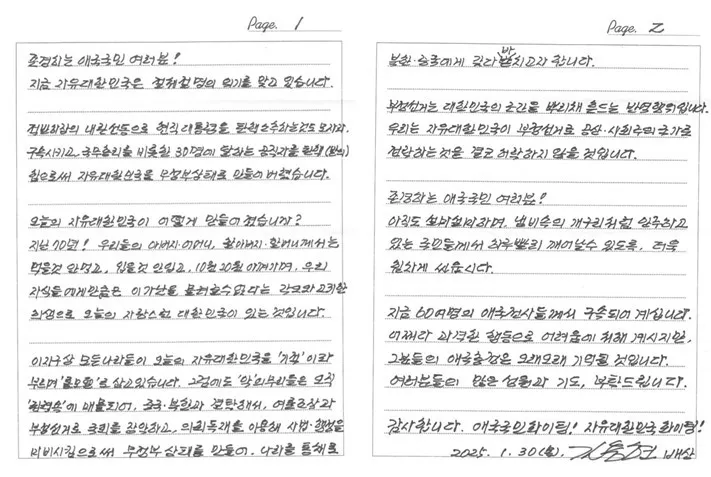 Page. 1
존경하는 애국국민 여러분!
지금 자유대한민국은 절체절명의 위기를 맞고 있습니다.
적반하장의 내란선동으로 현직 대통령을 탄핵소추하는것도 모자라,
구속시키고, 국무총리를 비롯한 30명에 달하는 공직자를 탄핵
함으로써 자유대한민국을 무정부상태로 만들어 버렸습니다.
오늘의 자유대한민국이 어떻게 만들어 졌습니까?
지난 70년! 우리들의 아버지·어머니, 할아버지·할머니께서는
먹을것 안먹고, 입을것 안입고, 10원 20원 아껴가며, 우리
자식들에게만큼은 이 가난을 물려줄수없다는 각오와 고귀한
희생으로 오늘의 자랑스런 대한민국이 있는 것입니다.
이 지구상 모든나라들이 오늘의 자유대한민국을 '기적'이라
부르며 '롤모델'로 삼고있습니다. 그럼에도 '악'의무리들은 오직
'권력욕'에 매몰되어, 중국·북한과 결탁해서, 여론조작과
부정선거로 국회를 장악하고, 의회독재를 이용해 사법·행정을
마비시킴으로써 무정부 상태를 만들어, 나라를 통째로
Page. 2
북한·중국에게 갖다 바치고자 합니다.
부정선거는 대한민국의 근간을 뿌리채 흔드는 반역행위입니다.
우리는 자유대한민국이 부정선거로 공산·사회주의 국가로
전락하는것을 결코 허락하지 않을 것입니다.
존경하는 애국국민 여러분!
아직도 설마설마하며, 냄비속의 개구리처럼 안주하고
있는 국민들께서 하루빨리 깨어날수 있도록, 더욱
힘차게 싸웁시다.
지금 60여명의 애국전사들께서 구속되어 계십니다.
어쩌다 과격한 행동으로 어려움에 처해 계시지만,
그분들의 애국충정은 오래오래 기억될 것입니다.
여러분들의 많은 성원과 기도, 부탁드립니다.
감사합니다. 애국국민화이팅! 자유대한민국 화이팅!
2025. 1. 30(목). 김용현 배상